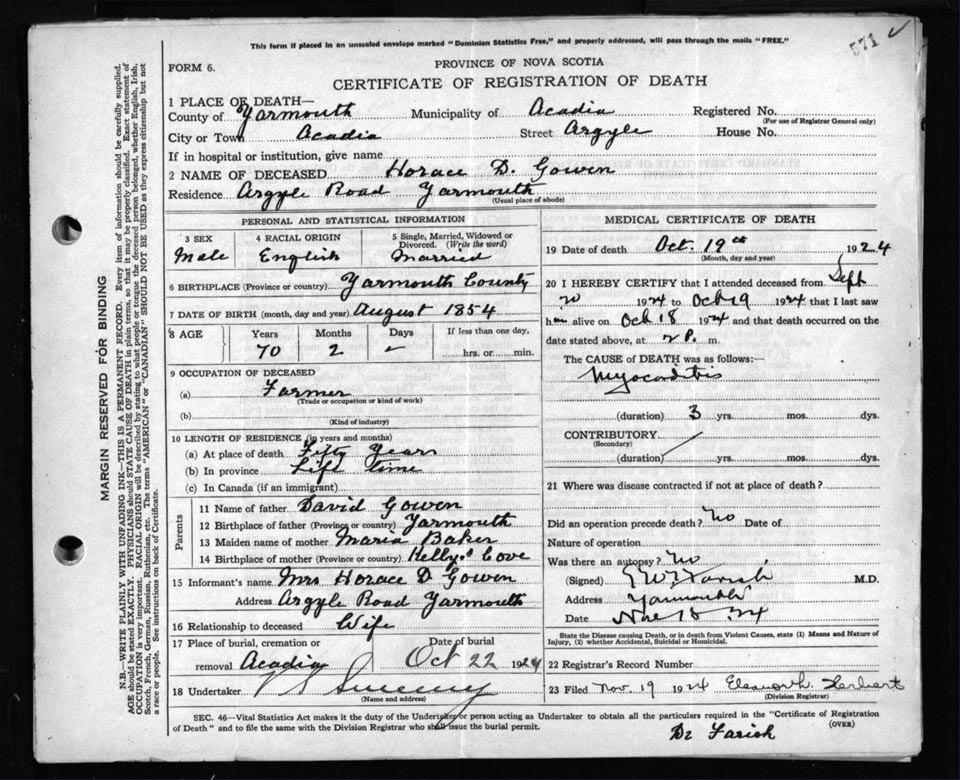 571 ✓
This form if placed in an unsealed envelope marked "Dominion Statistics Free," and properly addressed, will pass through the mails "FREE."
FORM 6.
PROVINCE OF NOVA SCOTIA
CERTIFICATE OF REGISTRATION OF DEATH
1 PLACE OF DEATH—
County of Yarmouth Municipality of Acadia Registered No.
(For use of Registrar General only)
City or Town Acadia Street Argyle House No.
If in hospital or institution, give name
2 NAME OF DECEASED Horace D. Gowen
Residence Argyle Road Yarmouth
(Usual place of abode)
PERSONAL AND STATISTICAL INFORMATION
3 SEX 4 RACIAL ORIGIN 5 Single, Married, Widowed or Divorced. (Write the word)
Male English Married
6 BIRTHPLACE (Province or country) Yarmouth County
7 DATE OF BIRTH (month, day and year) August 1854
8 AGE Years Months Days If less than one day,
70 2 hrs. or min.
9 OCCUPATION OF DECEASED
(a) Farmer
(Trade or occupation or kind of work)
(b)
(Kind of industry)
10 LENGTH OF RESIDENCE (in years and months)
(a) At place of death Fifty Years
(b) In province Life time
(c) In Canada (if an immigrant)
Parents
11 Name of father David Gowen
12 Birthplace of father (Province or country) Yarmouth
13 Maiden name of mother Maria Baker
14 Birthplace of mother (Province or country) Kelly's Cove
15 Informant's name Mrs Horace D Gowen
Address Argyle Road Yarmouth
16 Relationship to deceased Wife
17 Place of burial, cremation or Date of burial
removal Acadia Oct 22 1924
18 Undertaker Sweeny
(Name and address)
MEDICAL CERTIFICATE OF DEATH
19 Date of death Oct. 19th 1924
(Month, day and year)
20 I HEREBY CERTIFY that I attended deceased from Sept
20 1924 to Oct 19 1924 that I last saw
him alive on Oct 18 1924 and that death occurred on
date stated above, at 2 P. m.
The CAUSE OF DEATH was as follows:—
Myocarditis
(duration) 3 yrs. mos. dys.
CONTRIBUTORY
(Secondary)
(duration) yrs. mos. dys.
21 Where was disease contracted if not at place of death?
Did an operation precede death? No Date of
Nature of operation
Was there an autopsy? No
(Signed) Farish M.D.
Address Yarmouth
Date Nov 18 24
State the Disease causing Death, or in death from Violent Causes, state (1) Means and Nature of
Injury, (2) whether Accidental, Suicidal or Homicidal.
22 Registrar's Record Number
23 Filed Nov. 19 1924 Herbert
(Division Registrar)
SEC. 46—Vital Statistics Act makes it the duty of the Undertaker or person acting as Undertaker to obtain all the particulars required in the "Certificate of Registration
of Death" and to file the same with the Division Registrar who shall issue the burial permit. (OVER)
Dr Farish
MARGIN RESERVED FOR BINDING
N.B.—WRITE PLAINLY WITH UNFADING INK—THIS IS A PERMANENT RECORD. Every item of information should be carefully supplied.
AGE should be stated EXACTLY. PHYSICIANS should STATE CAUSE OF DEATH in plain terms, so that it may be properly classified. Exact statement of
OCCUPATION is very important. RACIAL ORIGIN will be described by stating to what people or tongue the deceased person belonged, whether English, Irish,
Scotch, French, German, Russian, Ruthenian, etc. The terms "AMERICAN" or "CANADIAN" SHOULD NOT BE USED as they express citizenship but not
a race or people. See instructions on back of Certificate.